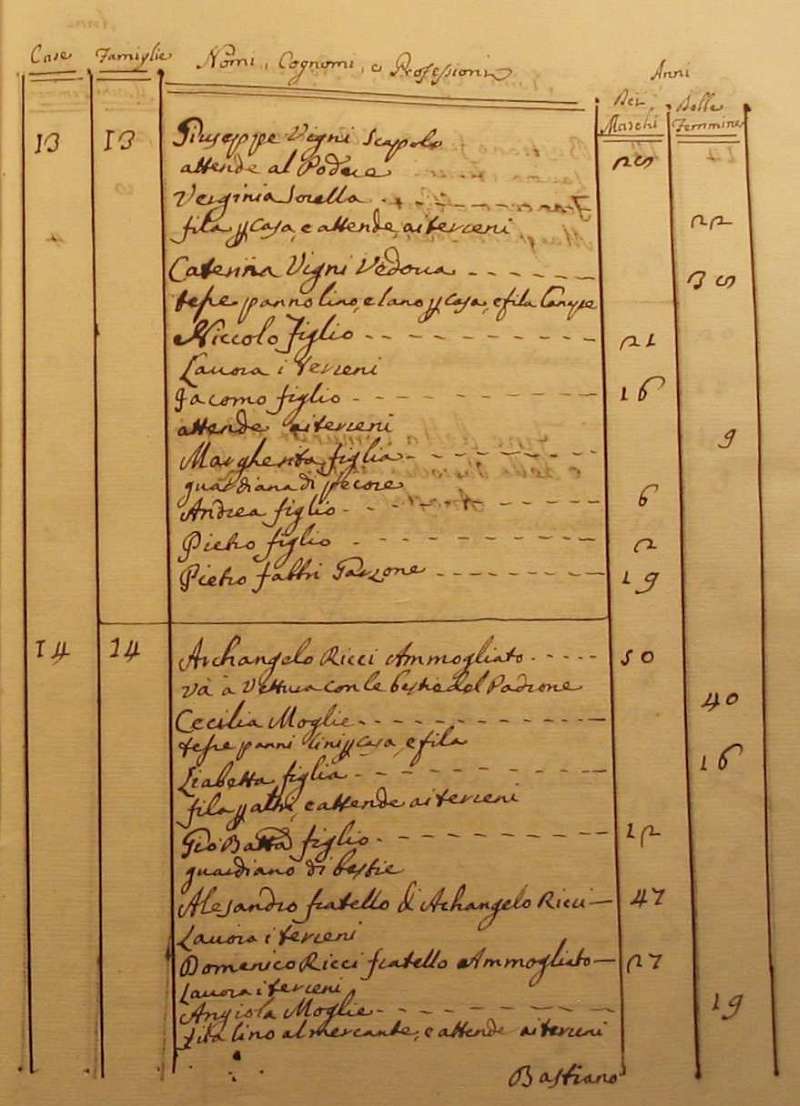 Case Famiglie Nomi, Cognomi, e Professioni Anni
Dei Maschi Delle Femmine
13 13 Giuseppe Vigni Scapolo
attende al Podere 25
Verginia Sorella
fila p casa, e attende ai terreni 22
Caterina Vigni Vedova 35
tesse panno lino, e lano p casa, e fila
Niccolo figlio 21
Lavora i terreni
Jacomo figlio 16
attende ai terreni
Margherita figlia 9
guardiana di pecore
Andrea figlio 6
Pietro figlio 2
Pietro fabbri Garzone 19
14 14 Archangelo Ricci Ammogliato 50
và à Vettura con le bestie del Padrone
Cecilia Moglie 40
tesse panni lini p casa, e fila
Lisabetta figlia 16
fila p altri, e attende ai terreni
Gio Batta figlio 12
guardiano di bestie
Alesandro fratello d' Achangelo Ricci 47
Lavora i terreni
Domenico Ricci fratello Ammogliato 27
Lavora i terreni
Angiola Moglie 19
fila lino al mercante, e attende ai terreni
Bastiano